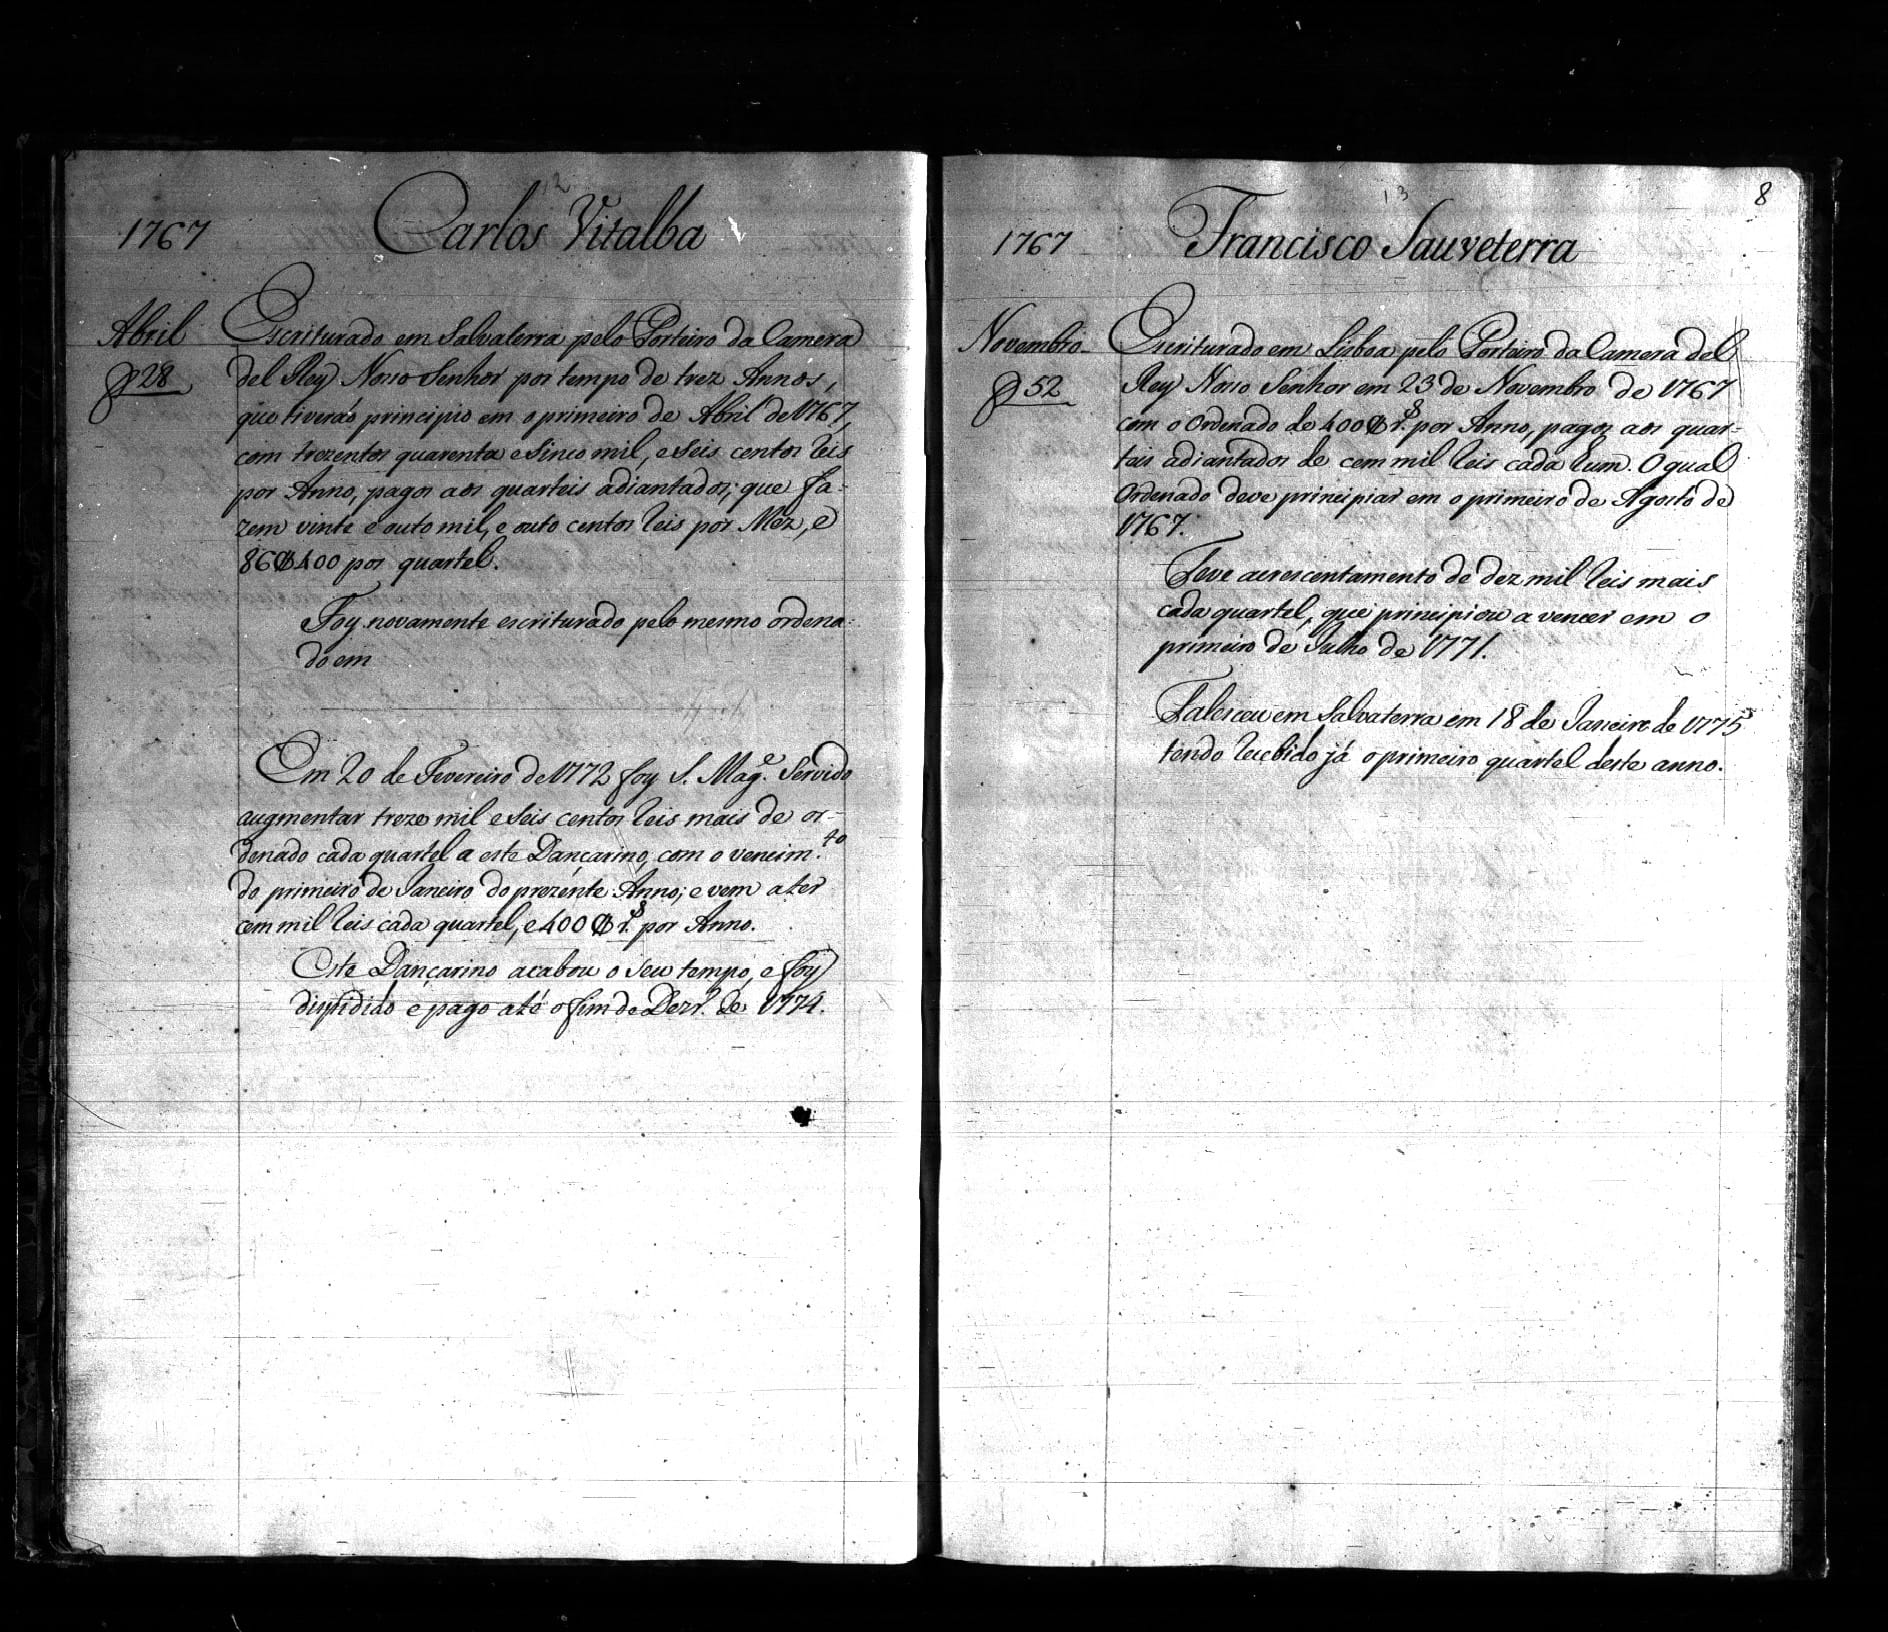 12
1767
Carlos Vitalba
Abril
28
Escriturado em Salvaterra pelo Porteiro da Camera
del Rey Nosso Senhor por tempo de trez Annos,
que tiverão principio em o primeiro de Abril de 1767,
com trezentos quarenta e Sinco mil, e Seis centos reis
por Anno, pagos aos quarteis adiantados; que fa-
zem vinte e outo mil, e outo centos reis por Mez, e
86₵400 por quartel.
Foy novamente escriturado pelo mesmo ordena-
do em
Em 20 de Fevereiro de 1772 foy S. Mag.e Servido
augmentar treze mil e Seis centos reis mais de or-
denado cada quartel a este Dançarino, com o vencim.to
do primeiro de Janeiro do prezente Anno; e vem a ter
cem mil reis cada quartel, e 400₵ r.s por Anno.
Este Dançarino acabou o Seu tempo, e foy
dispidido e pago até o fim de Dezr.o de 1774.
13
8
1767
Francisco Sauveterra
Novembro
52
Escriturado em Lisboa pelo Porteiro da Camera del
Rey Nosso Senhor em 23 de Novembro de 1767
com o Ordenado de 400₵ r.s por Anno, pagos aos quar-
teis adiantados de cem mil reis cada hum. O qual
Ordenado deve principiar em o primeiro de Agosto de
1767.
Teve acrescentamento de dez mil reis mais
cada quartel, que principiou a vencer em o
primeiro de Julho de 1771.
Falesceu em Salvaterra em 18 de Janeiro de 1775
tendo recebido já o primeiro quartel deste anno.